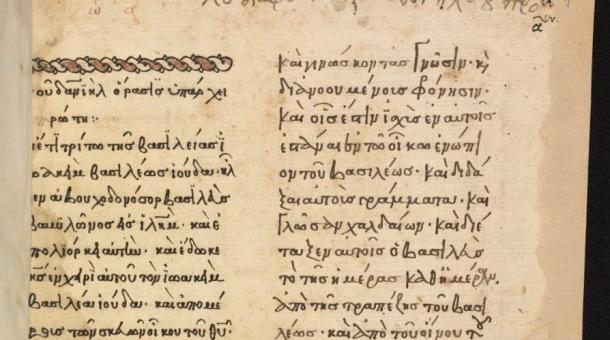 οῦ δανιὴλ ὅρασις ὑπάρχει
ρώτη:
ἔτει τρίτω τῆς βασιλείας ἰ
ωακὴμ βασιλέως ἰούδα· ἦλ
εν ναβουχοδονόσορ βασιλεὺς
βαβυλῶνος εἰς ἱλημ· καὶ ἐ
πολιόρκει αὐτήν· καὶ ἔδωκε
κς ἐν χειρὶ αὐτοῦ τὸν ἰωακὴμ
βασιλέα ἰούδα· καὶ ἀπὸ μέ
ρους τῶν σκευῶν οἴκου τοῦ θυ·
καὶ γινώσκοντας γνῶσιν· κὶ
διανοουμένοις φόνησιν·
καὶ οἷς ἐστὶν ἰχὶς ἐν αὐτοῖς
ἑστάναι ἐν τῶ οἴκω ἐνώπι
ον τοῦ βασιλέως· καὶ διδά
ξαι αὐτοῖς γράμματα· καὶ
γλῶσαν χαλδαίων· καὶ διέ
ταξεν αὐτοῖς ὁ βασιλεὺς
τὸ τῆς ἡμέρας καθημέραν,
ἀπὸ τῆς τραπέζης τοῦ βασι
λέως· καὶ ἀπὸ τοῦ οἴνου τοῦ